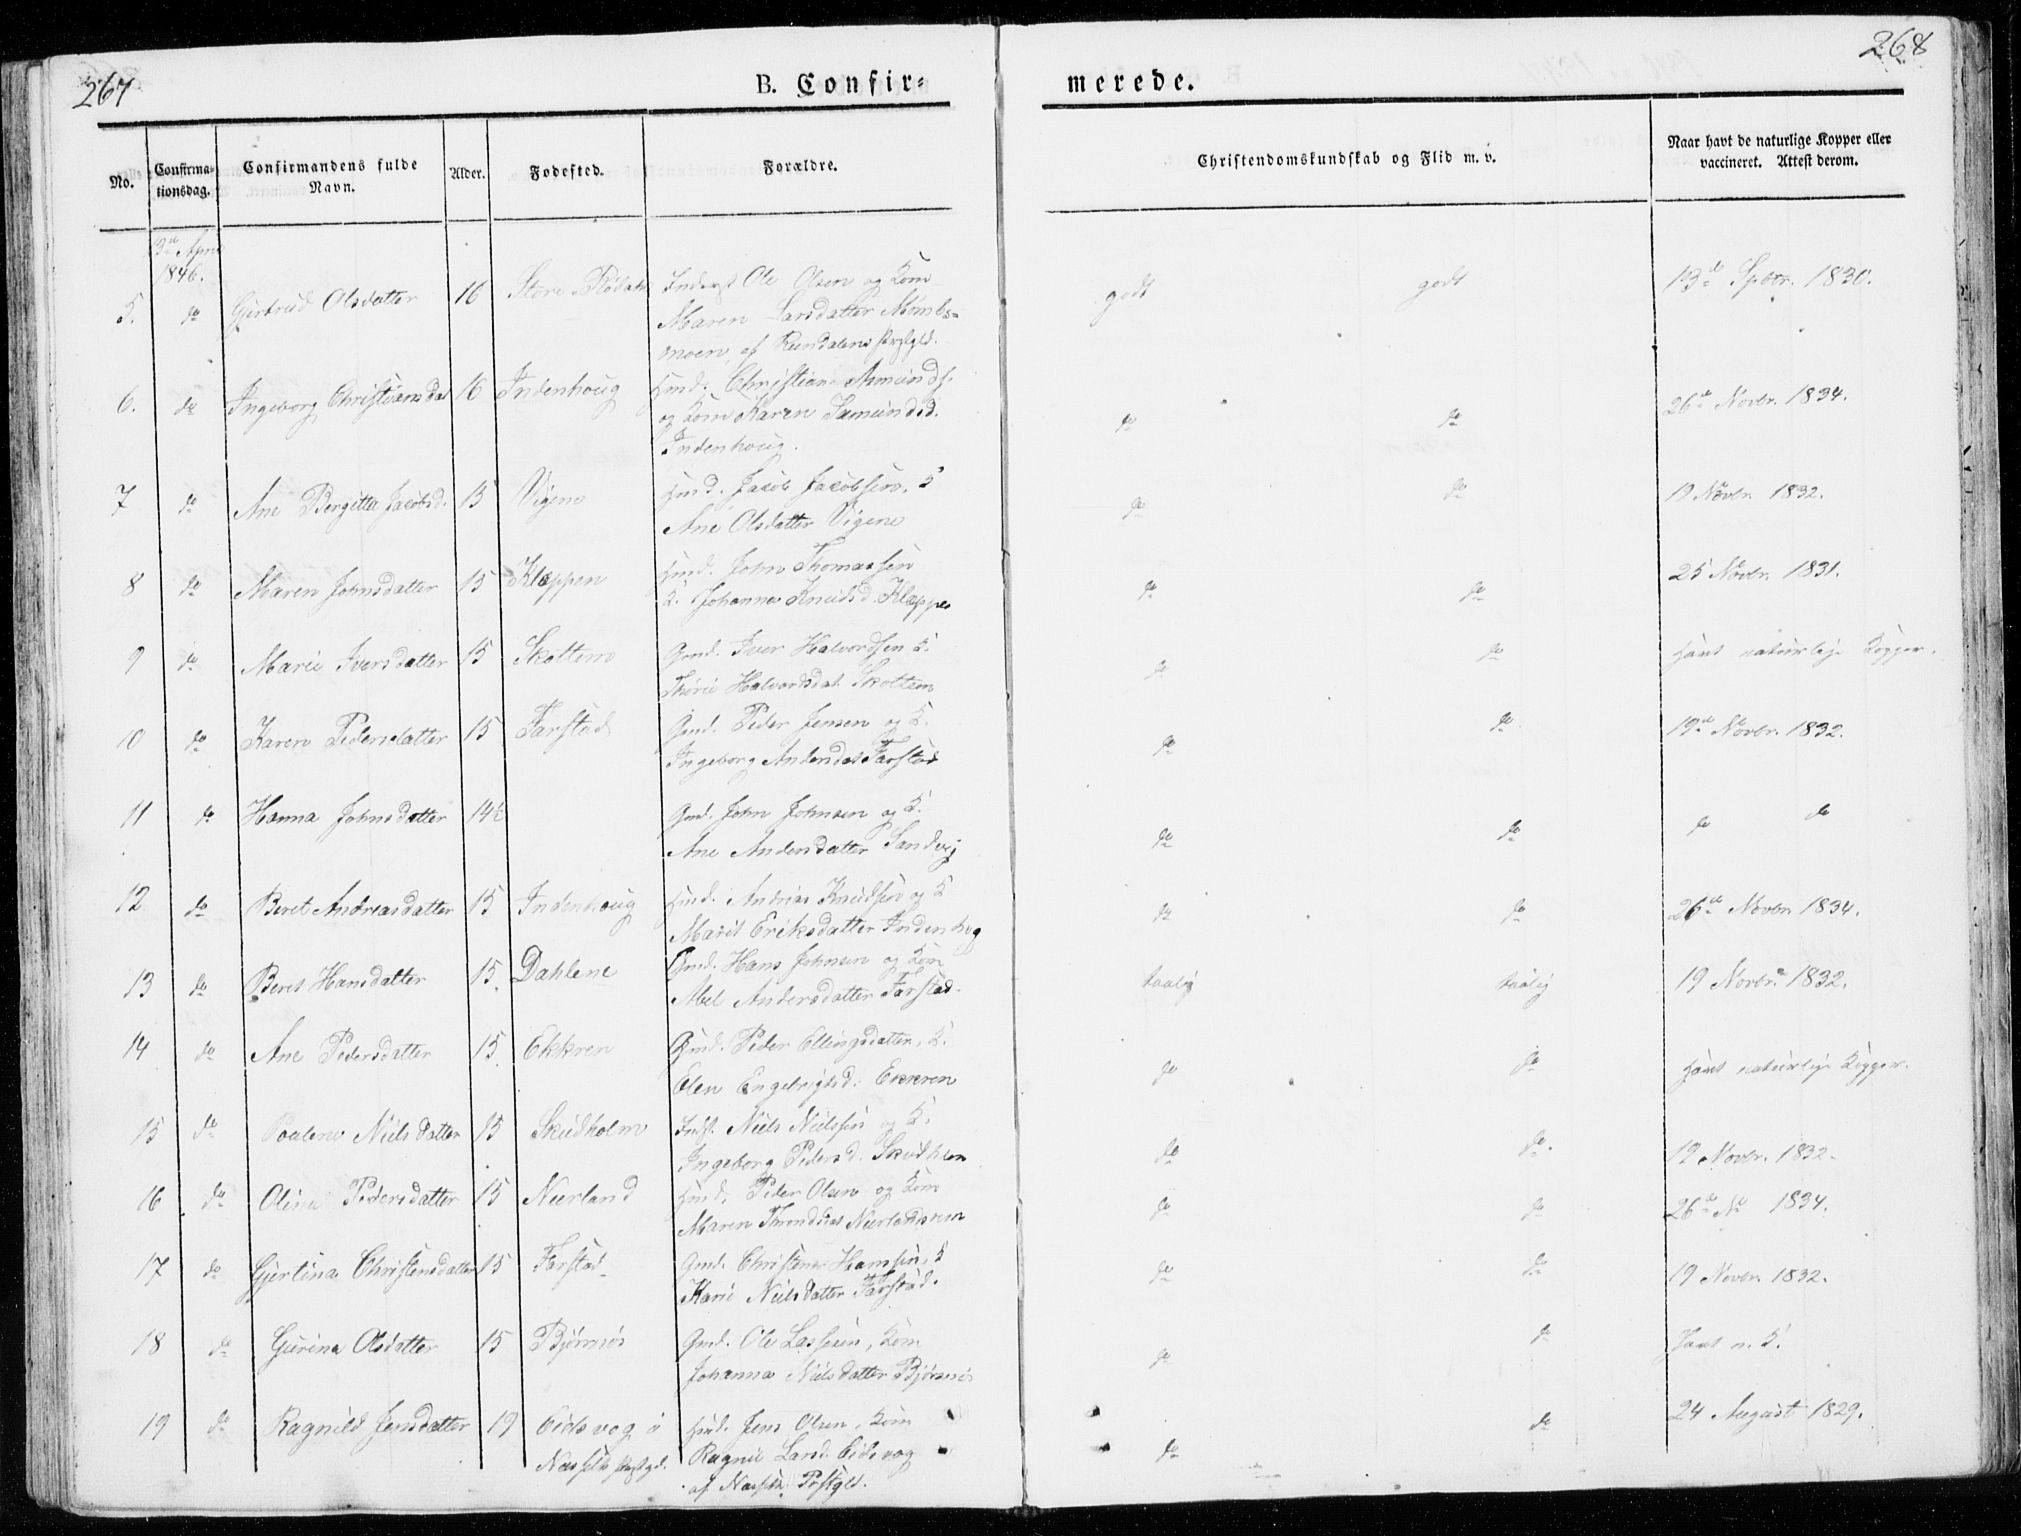 267
268
B. Confir=
merede.
No.
Confirma-
tionsdag.
Confirmandens fulde
Navn.
Alder.
Fødested.
Forældre.
Christendomskundskab og Flid m. v.
Naar havt de naturlige Kopper eller
vaccineret. Attest derom.
April
1846.
5. do Gjertrud Olsdatter 16 Store Inderst Ole Olsen og Kone
Maren Larsdatter
moen, af Præstgld.
godt godt 13de Spbr. 1830.
6. do Ingeborg Christiansdat 16 Indenhoug Huusmd. Christian Amunds.
og Kone Karen d.
Indenhoug.
do do 26de Novbr. 1834.
7 do Ane Bergitta Jacobsd. 15 Vigene Huusmd. Jacob Jacobsen. K
Ane Olsdatter Vigene
do do 19 Novbr. 1832.
8 do Maren Johnsdatter 15 Kleppen Huusmd. John Thomassen
K. Johanna Knudsd. Kleppe
do do 25 Novbr. 1831.
9 do Marie Iversdatter 15 Skottem Gmd. Iver Halvordsen K.
Halvordsdat. Skottem
do do havt naturlige Kopper.
10 do Karen Pedersdatter 15 Farstad Gmd. Peder Jensen og K.
Ingeborg Andersdat Farstad
do do 19de Novbr. 1832.
11 do Hanna Johnsdatter 14½ Gmd. John Johnsen og K.
Ane Andersdatter Sandvig
do do do do
12 do Beret Andreasdatter 15 Indenhoug Huusmd. Andreas Knudsen og K
Marit Eriksdatter Indenhoug
do do 26de Novbr 1834.
13 do Beret Hansdatter 15. Dahlene Gmd. Hans Johnsen og Kone
Abel Andersdatter Farstad.
taalig taalig 19 Novbr. 1832.
14 do Ane Pedersdatter 15 Ekkren Gmd. Peder Ellingsdatter, K.
Elen Engebrigtsd. Ekkren
do do havt naturlige Kopper.
15 do Poalene Nielsdatter 15 Skudholm Indst. Niels Nielssen og K.
Ingeborg Pedersd. Skudholm
do do. 19 Novbr. 1832.
16 do Olina Pedersdatter 15 Nerland Huusmd. Peder Olsen og Kone
Maren Throndsdat
do do 26de No 1834.
17 do Gjertina Christensdatter 15 Farstad Gmd. Christen Hansen, K
Karie Nielsdatter Farstad.
do do 19 Novbr. 1832.
18 do Gurina Olsdatter 15 Bjørnøs Gmd. Ole Lassesen, Kone
Johanna Nielsdatter Bjørnøs
do do havt n. K.
19 do Ragnild Jensdatter 19 Eidsvog i Huusmd. Jens Olsen, Kone
Præstgd. Larsd. Eidsvog
af Præstgld.
do do 24 August 1829.